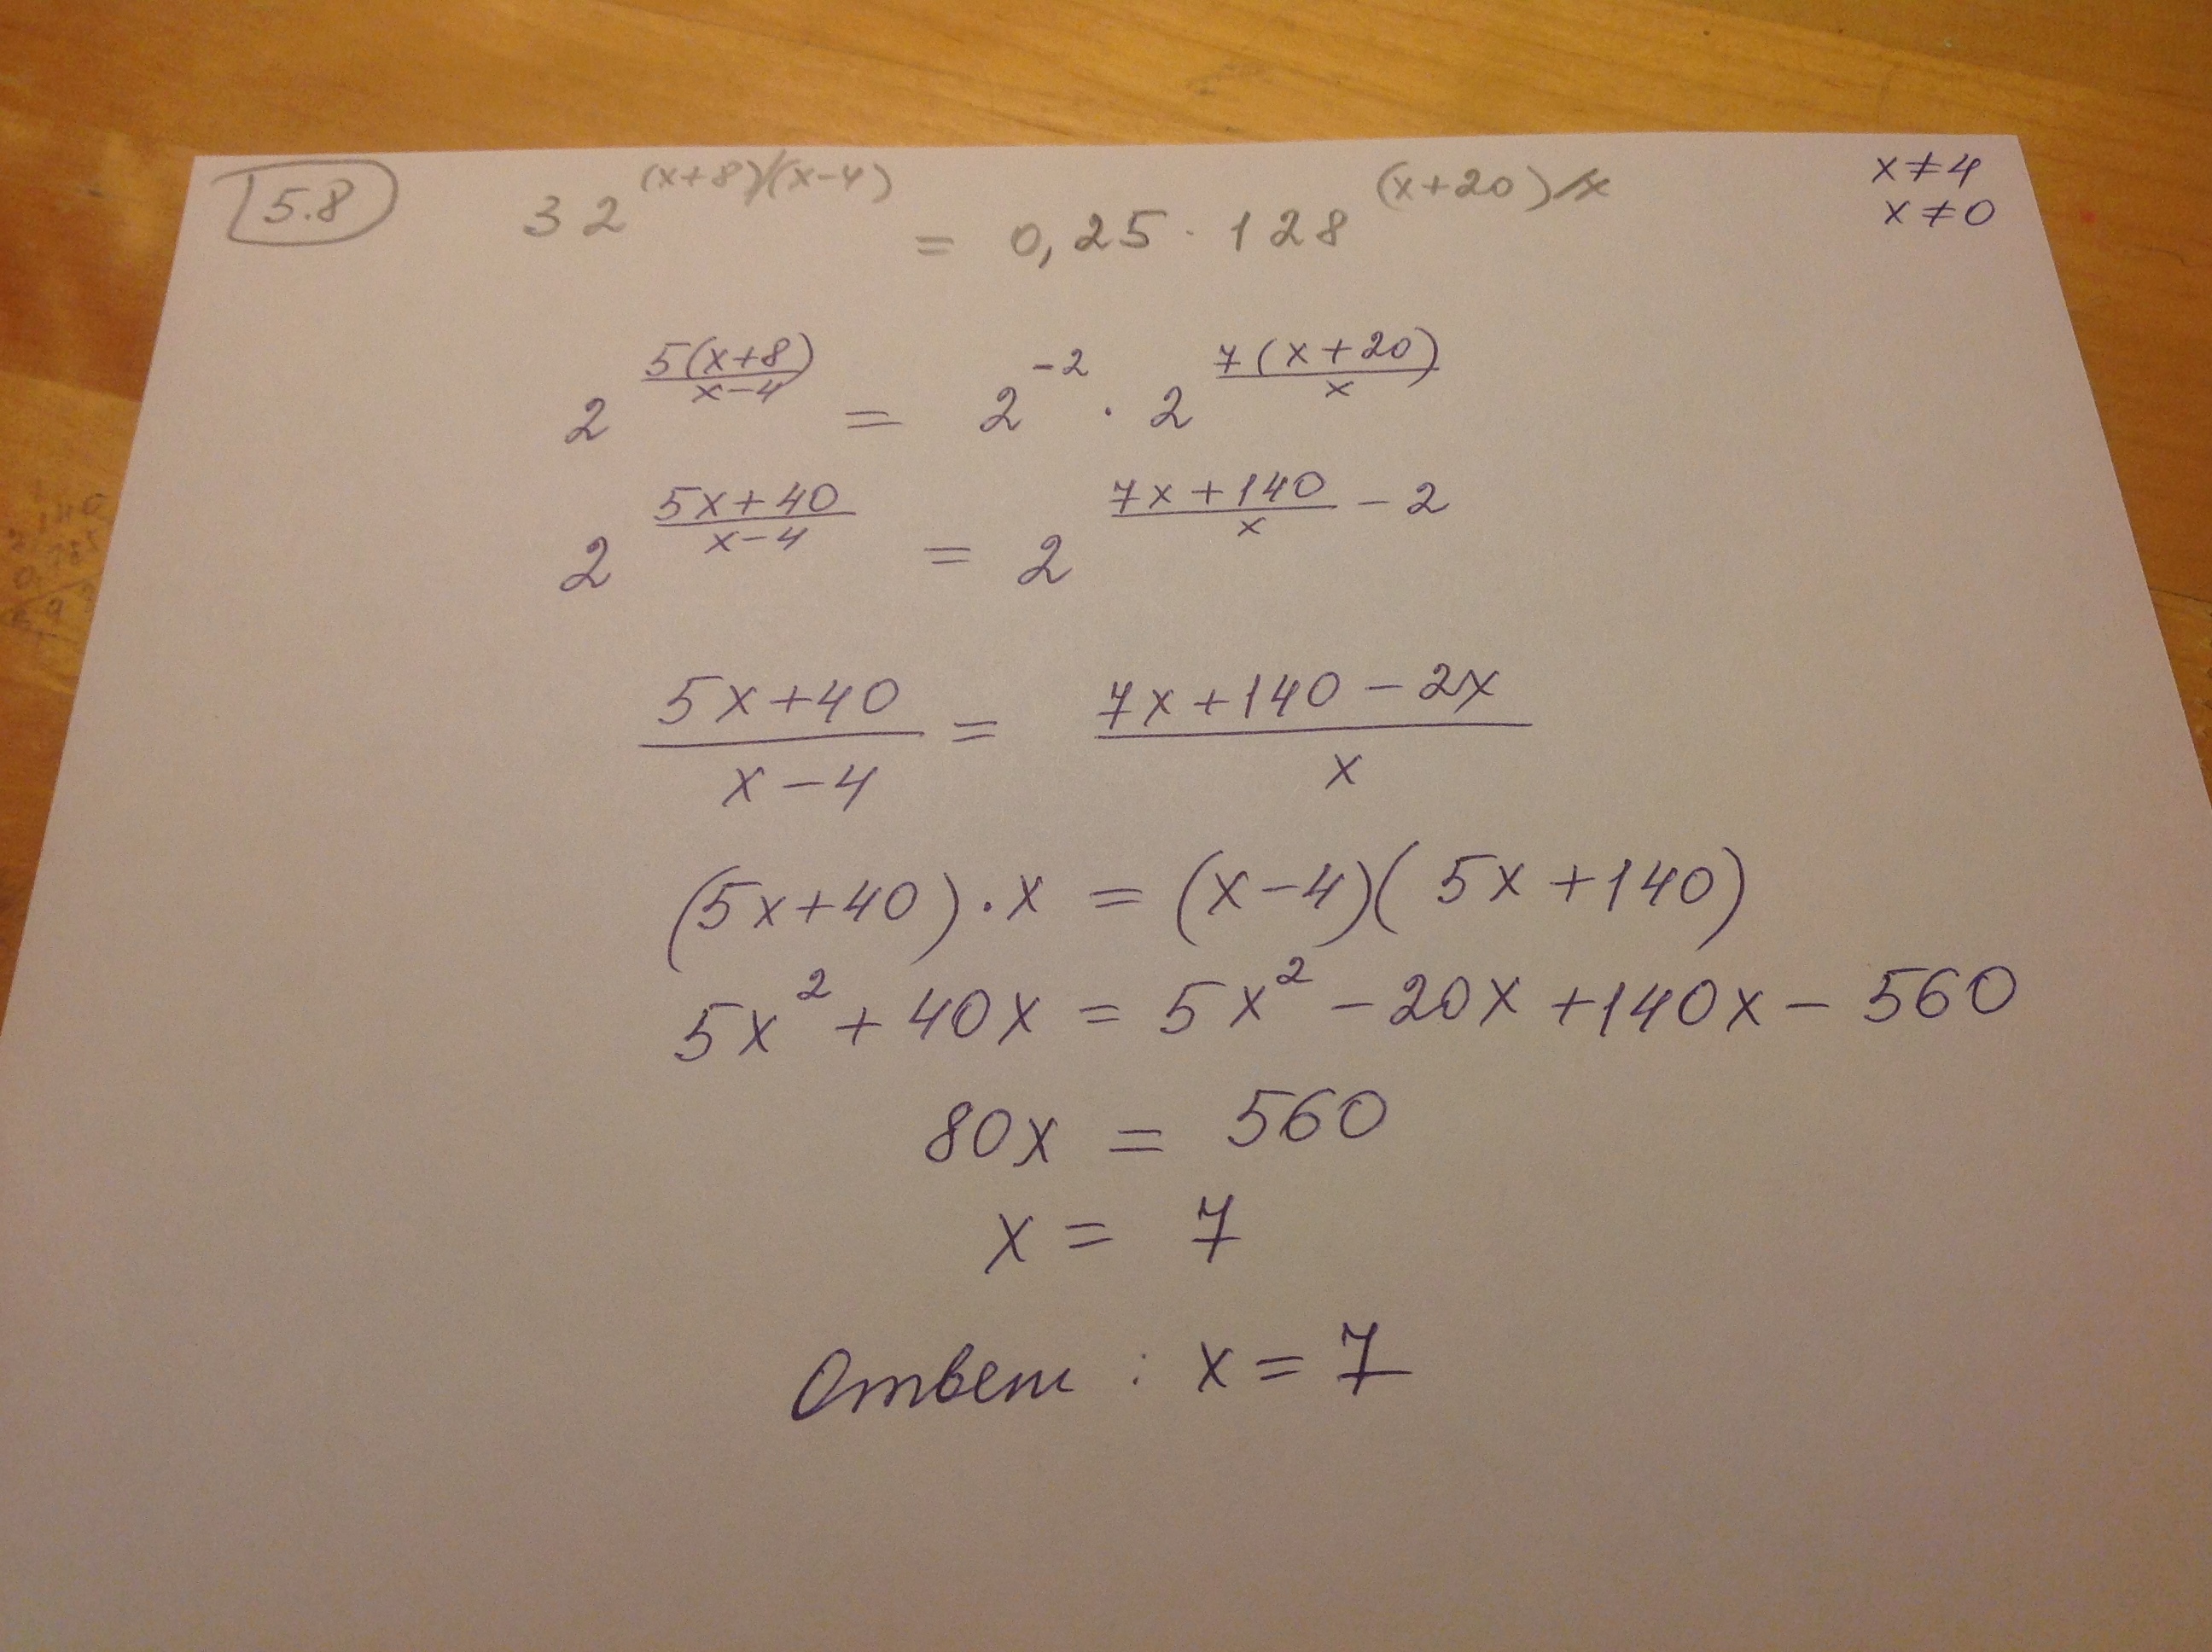 5.8 32^((x+8)/(x-4)) = 0,25 · 128^((x+20)/x) x≠4
x≠0
2^(5(x+8)/(x-4)) = 2^(-2) · 2^(7(x+20)/x)
2^((5x+40)/(x-4)) = 2^((7x+140)/x - 2)
(5x+40)/(x-4) = (7x+140-2x)/x
(5x+40)·x = (x-4)(5x+140)
5x² + 40x = 5x² - 20x + 140x - 560
80x = 560
x = 7
Ответ : x = 7